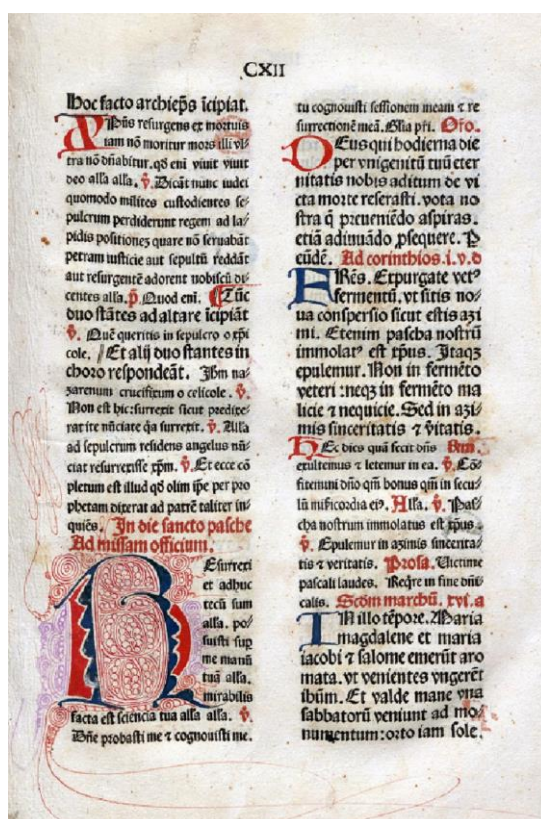 CXII
Hoc facto archiep̄s īcipiat.
XP̄us resurgens ex mortuis
iam nō moritur mors illi vl⸗
tra nō dn̄abitur. qd̄ eni viuit viuit
deo all'a all'a. ℣. Dicāt nunc iudei
quomodo milites custodientes se⸗
pulcrum perdiderunt regem ad la⸗
pidis positionez quare nō seruabāt
petram iusticie aut sepultū reddāt
aut resurgentē adorent nobiscū di⸗
centes all'a. p̄. Quod eni. ¶Tūc
duo stātes ad altare īcipiāt
℣. Quē queritis in sepulcro o xp̄i
cole. // Et alij duo stantes in
choro respondeāt. Jhm̄ na⸗
zarenum crucifixum o celicole. ℣.
Non est hic: surrexit sicut predixe⸗
rat ite nūciate qa surrexit. ℣. All'a
ad sepulcrum residens angelus nū⸗
ciat resurrexisse xp̄m. ℣. Et ecce cō
pletum est illud qd̄ olim ip̄e per pro
phetam dixerat ad patrē taliter in⸗
quiēs. In die sancto pasche
Ad missam officium.
REsurrexi
et adhuc
tecū sum
all'a. po⸗
suisti sup
me manū
tuā all'a.
mirabilis
facta est sciēncia tua all'a all'a. ℣.
Dn̄e probasti me ⁊ cognouisti me.
tu cognouisti sessionem meam ⁊ re
surrectionē meā. Gl'ia pr̄i. Or̄o.
DEus qui hodierna die
per vnigenitū tuū eter
nitatis nobis aditum de vi
cta morte reserasti. vota no
stra q̄ preueniēdo aspiras.
etiā adiuuādo ꝓsequere. P
eūdē. Ad corinthios. i. v. d
FRēs. Expurgate vetꝰ
fermentū. vt sitis no⸗
ua conspersio sicut estis azi
mi. Etenim pascha nostrū
immolatꝰ est xp̄us. Jtaqz
epulemur. Non in fermēto
veteri: neqz in fermēto ma
licie ⁊ nequicie. Sed in azi⸗
mis sinceritatis ⁊ v̄itatis.
HEc dies quā fecit dn̄s
exultemus ⁊ letemur in ea. ℣. Cō⸗
fitemini dn̄o qm̄ bonus qm̄ in secu⸗
lū misericordia eiꝰ. All'a. ℣. Pas⸗
cha nostrum immolatus est xp̄us.
℣. Epulemur in azimis sincerita⸗
tis ⁊ veritatis. Prosa. Victime
pascali laudes. Reqre in fine dn̄i
calis. Scd̄m marchū. xvi. a
IN illo tēpore. Maria
magdalene et maria
iacobi ⁊ salome emerūt aro
mata. vt venientes vngerēt
ihūm. Et valde mane vna
sabbatorū veniunt ad mo⸗
numentum: orto iam sole.